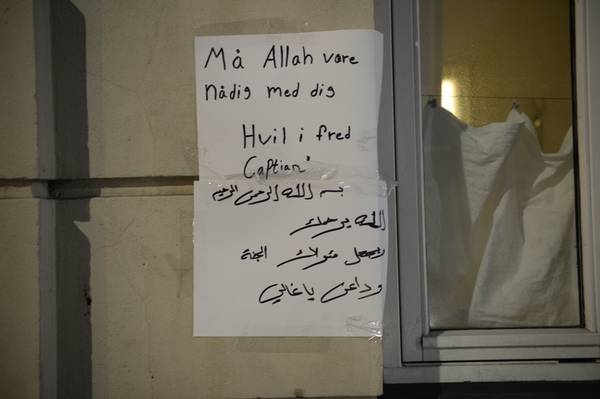 Må Allah vore
nådig med dig
Hvil i fred
Captian'
بسم الله الرحمن الرحيم
الله يرحمك
ويجعل مثواك الجنة
وداعن يا غالي